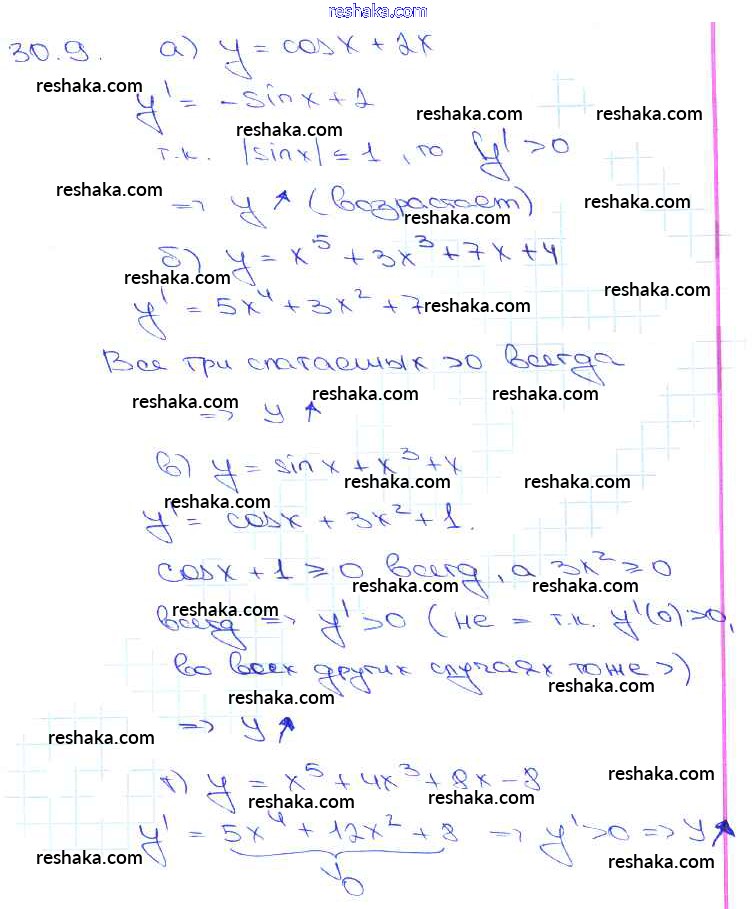 reshaka.com
30.9. а) y = cosx + 2x
reshaka.com
y' = -sinx + 2
reshaka.com reshaka.com
reshaka.com
т.к. |sinx| ≤ 1, то y' > 0
reshaka.com
⇒ y ↑ (возрастает)
reshaka.com
reshaka.com
б) y = x⁵ + 3x³ + 7x + 4
reshaka.com
reshaka.com
y' = 5x⁴ + 3x² + 7
reshaka.com
Все три слагаемых >0 всегда
reshaka.com reshaka.com reshaka.com
⇒ y ↑
в) y = sinx + x³ + x
reshaka.com reshaka.com
reshaka.com
y' = cosx + 3x² + 1.
cosx + 1 ≥ 0 всегд, а 3x² ≥ 0
reshaka.com reshaka.com
reshaka.com
всегд ⇒ y' > 0 (не = т.к. y'(0) > 0,
во всех других случаях тоже >)
reshaka.com
reshaka.com
⇒ y ↑
reshaka.com
г) y = x⁵ + 4x³ + 8x - 8
reshaka.com
reshaka.com reshaka.com
y' = 5x⁴ + 12x² + 8 ⇒ y' > 0 ⇒ y ↑
reshaka.com reshaka.com
∨
0